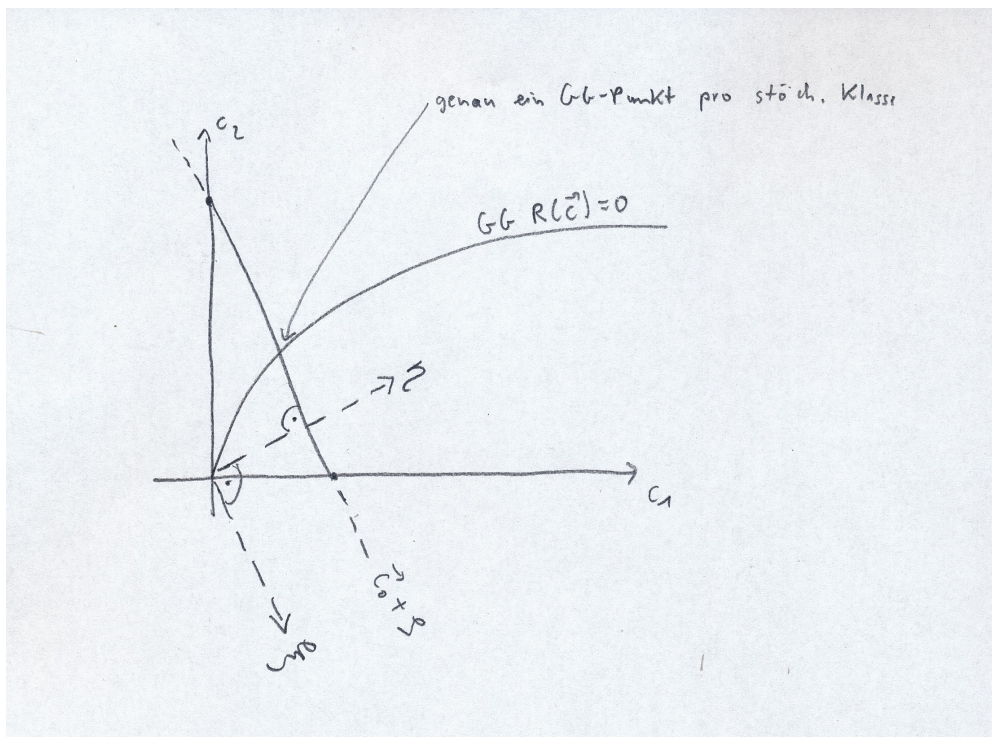 genau ein GG-Punkt pro stöch. Klasse
c₂
GG R(c⃗)=0
c₁